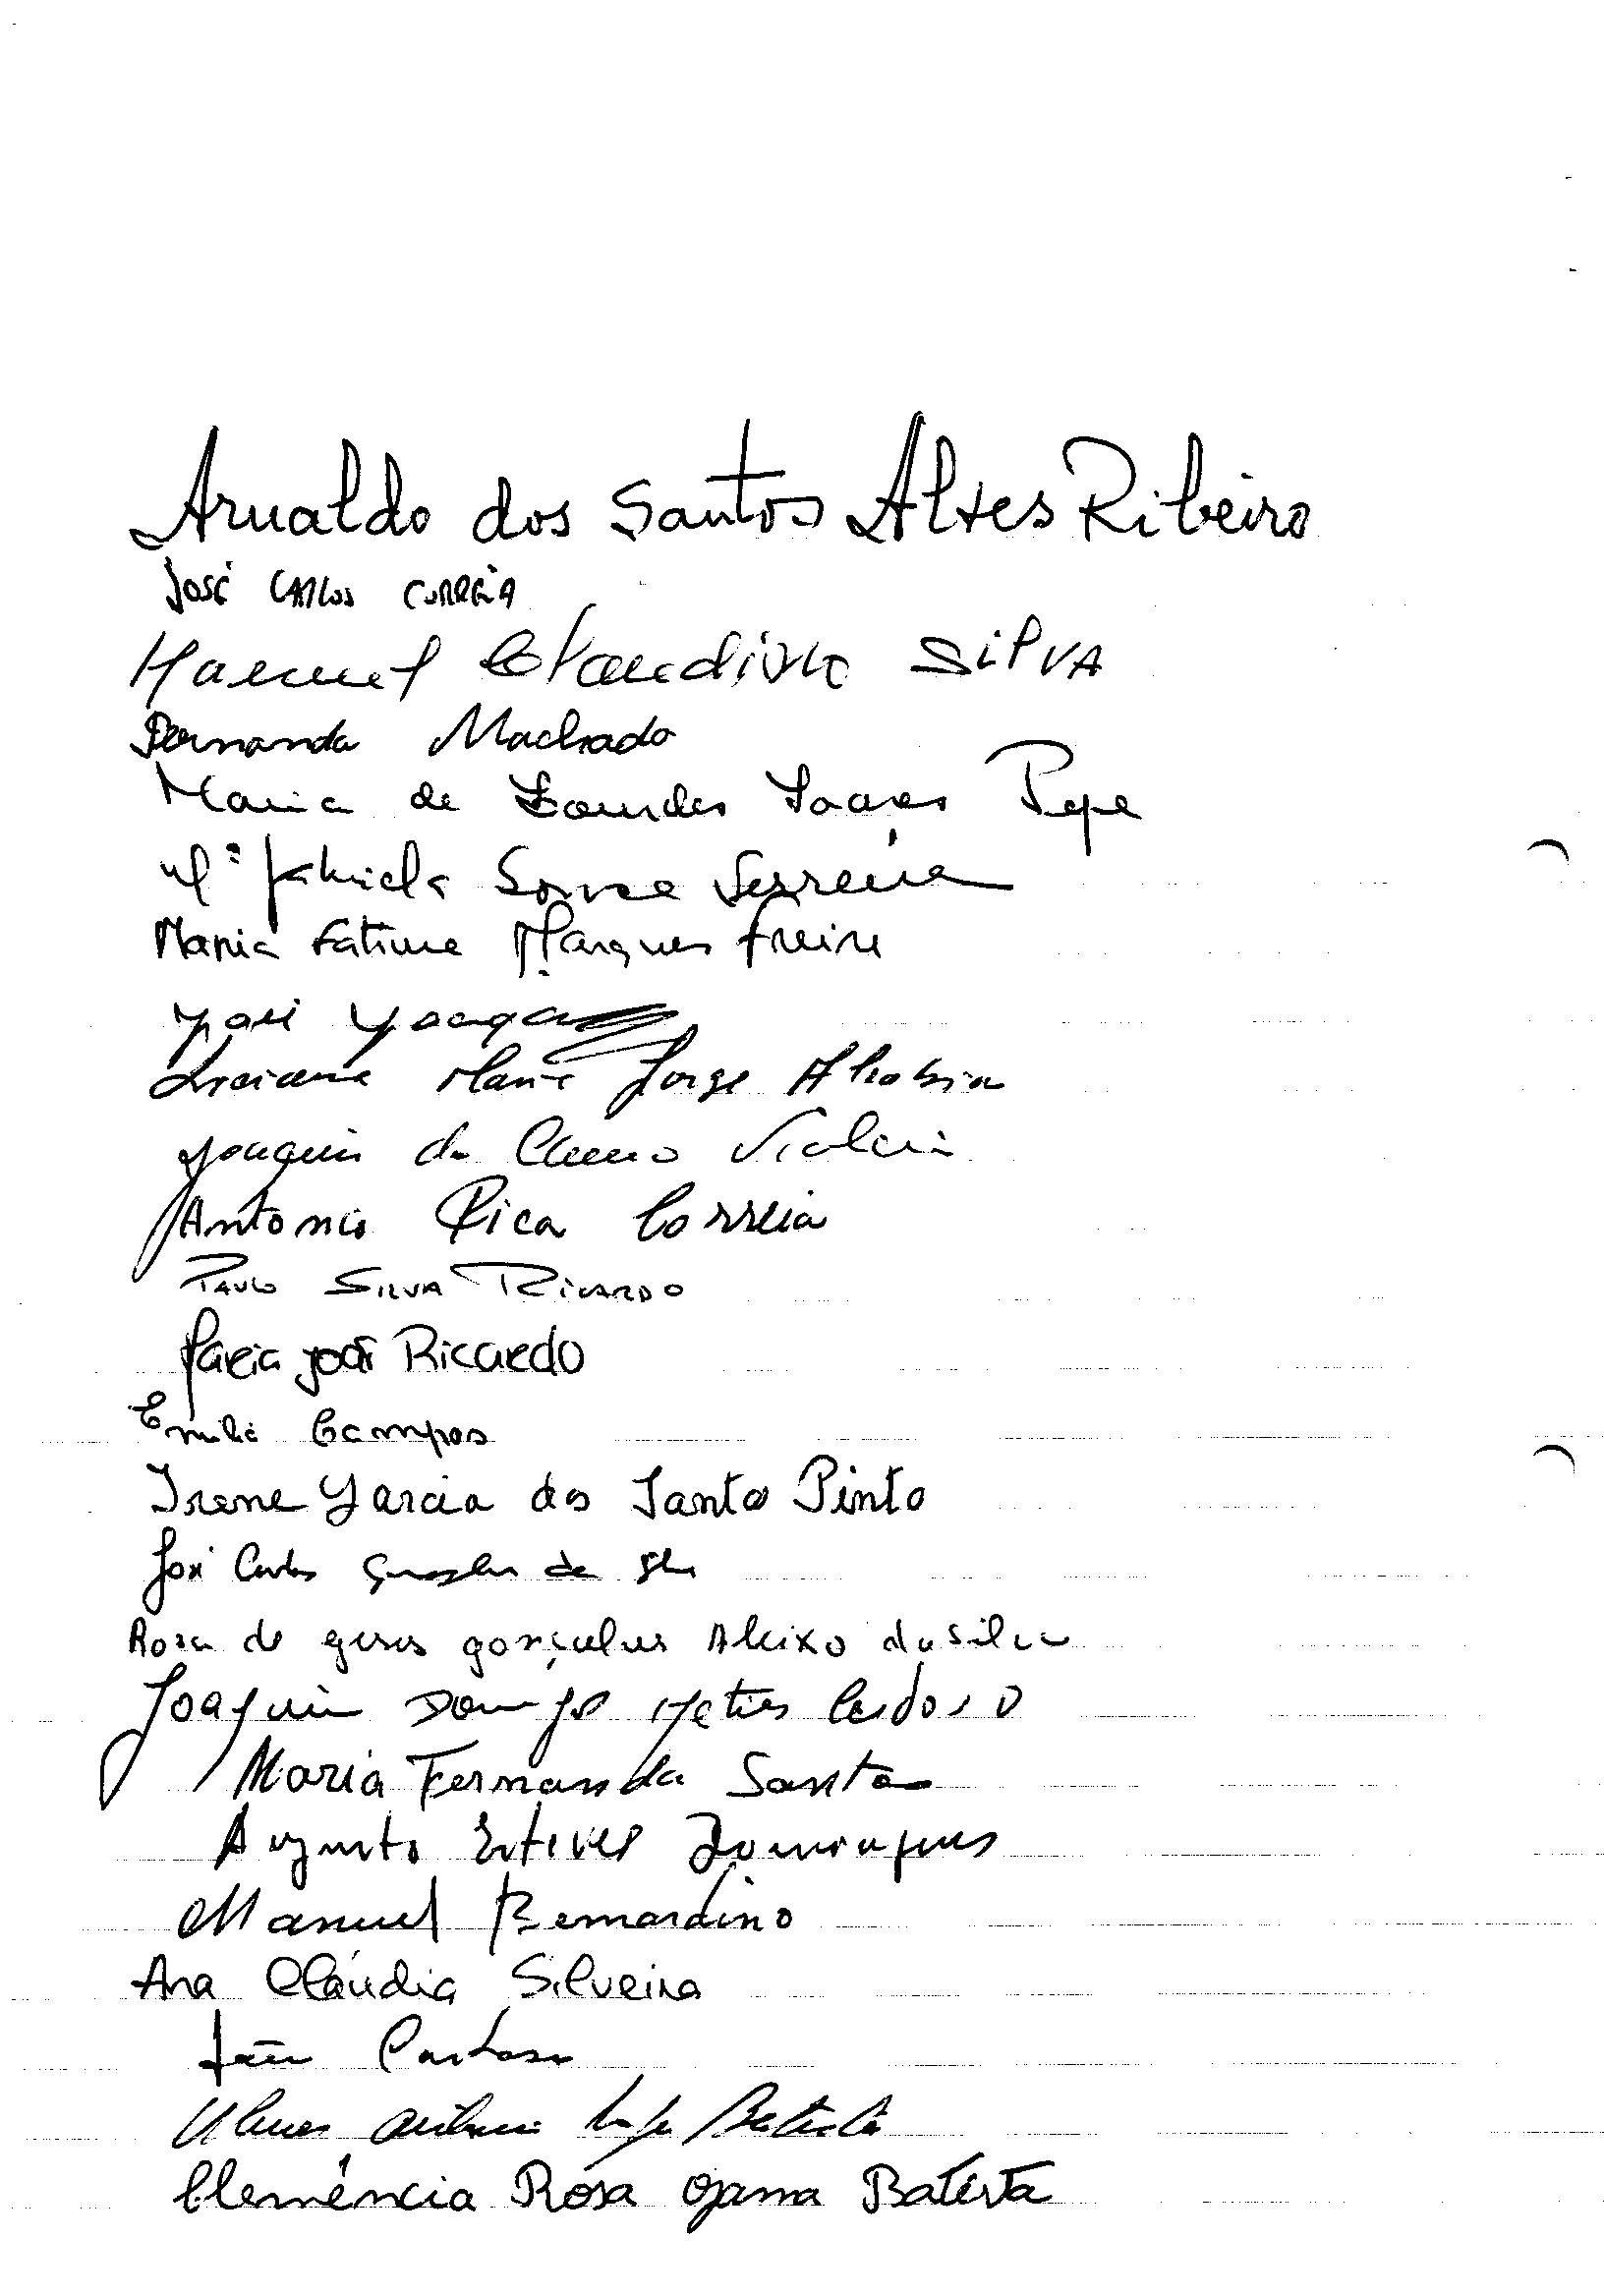 Arnaldo dos Santos Alves Ribeiro
José Carlos Correia
Manuel Claudino SilVA
Fernanda Machado
Maria de Lourdes Soares Pepe
Mª Gabriela Sousa Ferreira
Maria Fatima Marques Freire
José Joaquim
Luciana Maria Jorge
Joaquim do Carmo
Antonio Rica Correia
Paulo Silva Ricardo
Maria José Ricardo
Emilia Campos
Irene Garcia dos Santos Pinto
José Carlos Gonçalves da Silva
Rosa de Geses Gonçalves Aleixo da Silva
Joaquim Domingos Matias Cardoso
Maria Fernanda Santos
Augusto Esteves Domingues
Manuel Bernardino
Ana Cláudia Silveira
João Cardoso
Ulisses António Batista
Clemência Rosa Gama Batista